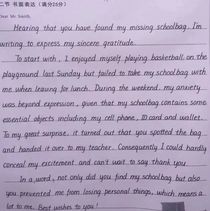 二节 书面表达 (满分25分)
Dear Mr. Smith,
Hearing that you have found my missing schoolbag. I'm
writing to express my sincere gratitude.
To start with, I enjoyed myself playing basketball on the
playground last Sunday but failed to take my schoolbag with
me when leaving for lunch. During the weekend, my anxiety
was beyond expression, given that my schoolbag contains some
essential objects including my cell phone, ID card and wallet.
To my great surprise, it turned out that you spotted the bag
and handed it over to my teacher. Consequently I could hardly
conceal my excitement and can't wait to say thank you.
In a word, not only did you find my schoolbag but also
you prevented me from losing personal things, which means a
lot to me. Best wishes to you!